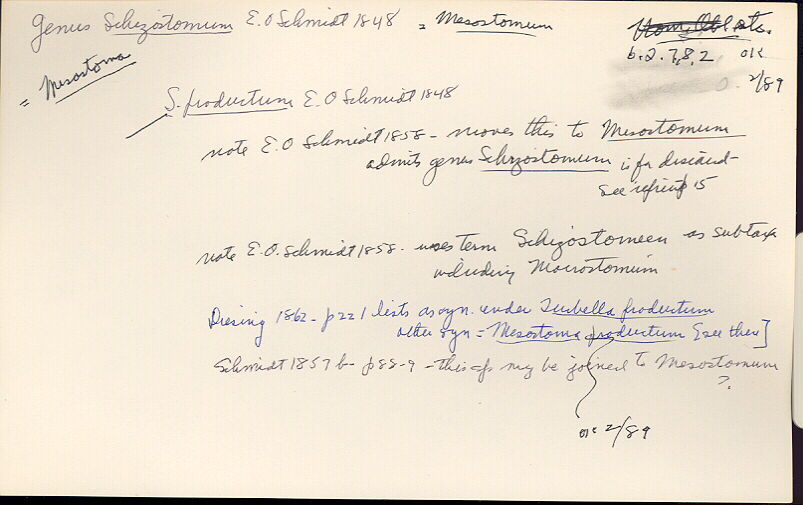 Genus Schizostomum E.O Schmidt 1848 = Mesostomum
b.2.7,8,2 OK
2/89
= Mesostoma
S. productum E.O Schmidt 1848
note E.O Schmidt 1858 - moves this to Mesostomum
admits genus Schizostomum is for discard -
see reprint p 15
note E.O. Schmidt 1858 - uses term Schizostomeen as subtaxa
including Macrostomum
Diesing 1862 - p221 lists as syn. under Turbella productum
other syn = Mesostoma productum [see there]
Schmidt 1857b - p88-9 - this sp may be joined to Mesostomum
?
OK 2/89